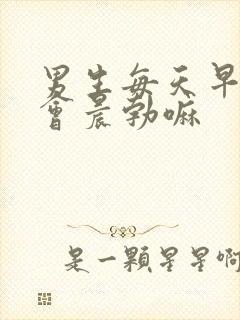 男生每天早
会晨勃嘛
是一颗星星啊